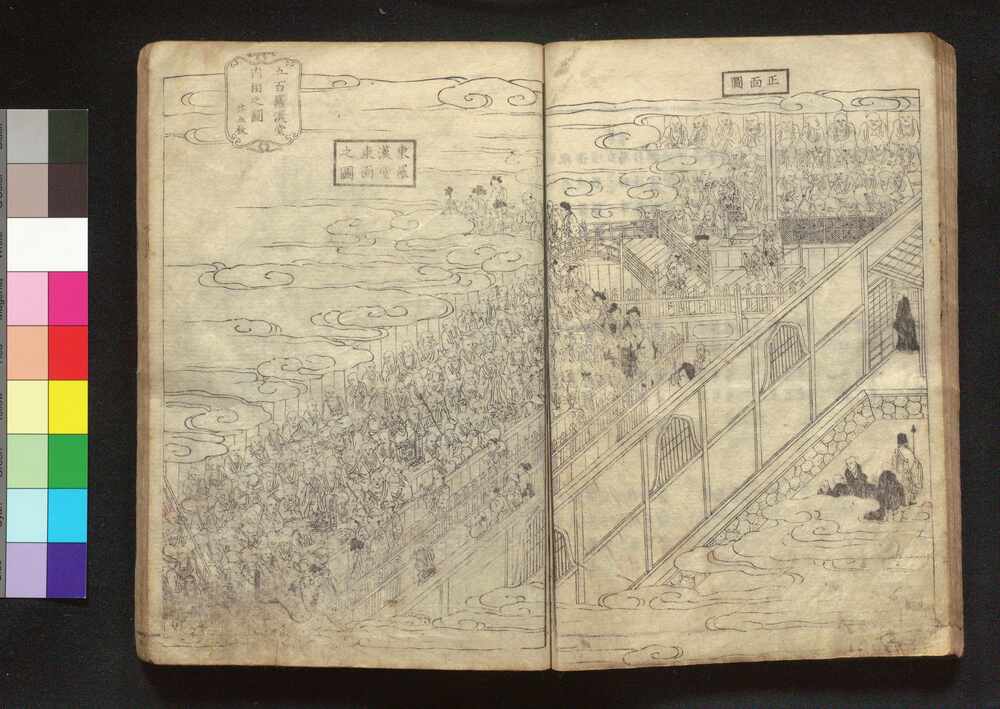 正面圖
五百羅漢堂
内相之圖
東羅
漢堂
東面
之圖